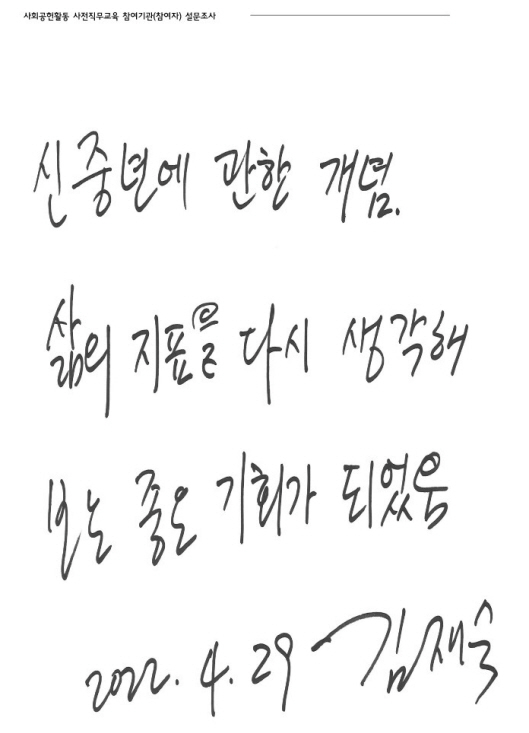 사회공헌활동 사전직무교육 참여기관(참여자) 설문조사
신중년에 관한 개념.
삶의 지표를 다시 생각해
보는 좋은 기회가 되었음
2022. 4. 29 김재숙